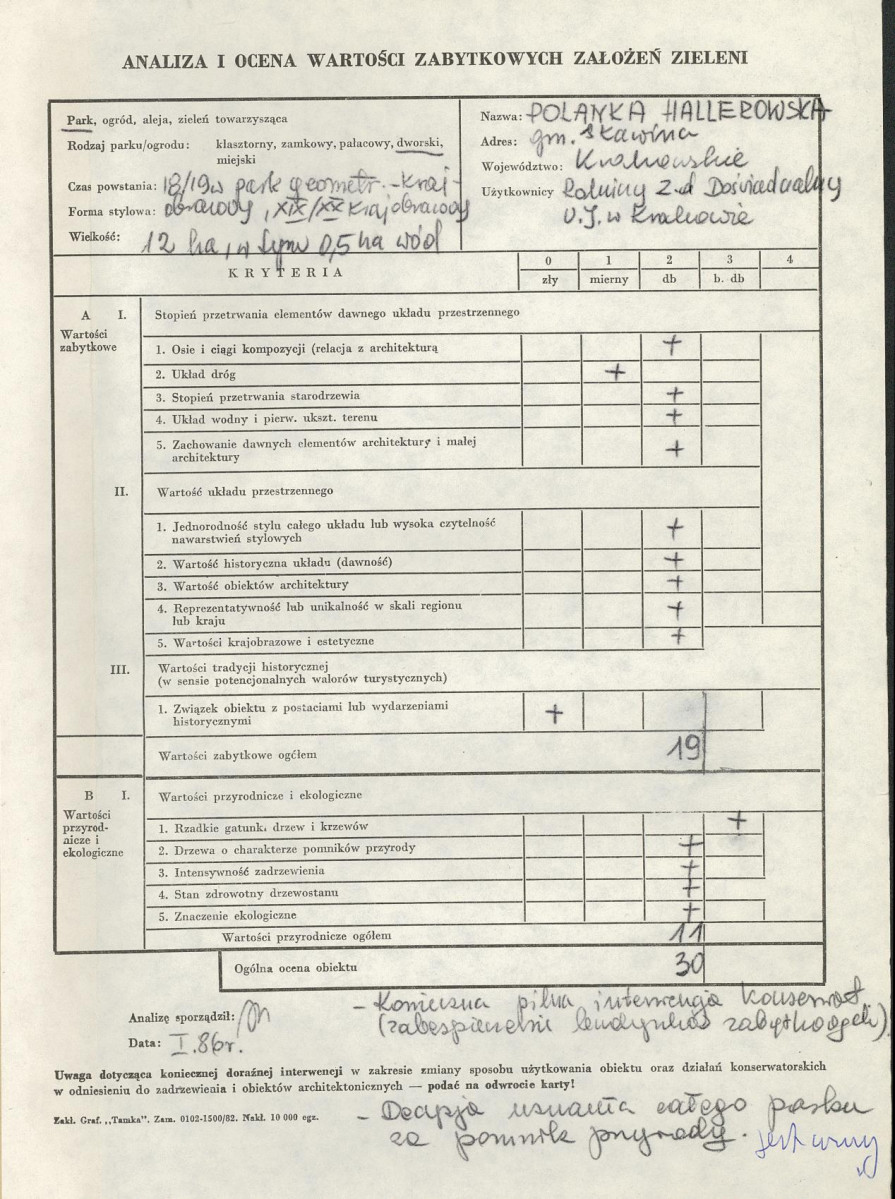 ANALIZA I OCENA WARTOŚCI ZABYTKOWYCH ZAŁOŻEŃ ZIELENI
Park, ogród, aleja, zieleń towarzysząca
Rodzaj parku/ogrodu: klasztorny, zamkowy, pałacowy, dworski,
miejski
Czas powstania: 18/19 w park geometr.-kraj-
Forma stylowa: obrazowy, XIX/XX krajobrazowy
Wielkość: 12 ha, w tym 0,5 ha wód
Nazwa: POLANKA HALLEROWSKA
Adres: gm. Skawina
Województwo: Krakowskie
Użytkownicy Rolniczy Z-d Doświadczalny
U.J. w Krakowie
KRYTERIA
0 1 2 3 4
zły mierny db b. db
A I. Stopień przetrwania elementów dawnego układu przestrzennego
Wartości
zabytkowe
1. Osie i ciągi kompozycji (relacja z architekturą +
2. Układ dróg +
3. Stopień przetrwania starodrzewia +
4. Układ wodny i pierw. ukszt. terenu +
5. Zachowanie dawnych elementów architektury i małej
architektury +
II. Wartość układu przestrzennego
1. Jednorodność stylu całego układu lub wysoka czytelność
nawarstwień stylowych +
2. Wartość historyczna układu (dawność) +
3. Wartość obiektów architektury +
4. Reprezentatywność lub unikalność w skali regionu
lub kraju +
5. Wartości krajobrazowe i estetyczne +
III. Wartości tradycji historycznej
(w sensie potencjonalnych walorów turystycznych)
1. Związek obiektu z postaciami lub wydarzeniami
historycznymi +
Wartości zabytkowe ogółem 19
B I. Wartości przyrodnicze i ekologiczne
Wartości
przyrod-
nicze i
ekologiczne
1. Rzadkie gatunki drzew i krzewów +
2. Drzewa o charakterze pomników przyrody +
3. Intensywność zadrzewienia +
4. Stan zdrowotny drzewostanu +
5. Znaczenie ekologiczne +
Wartości przyrodnicze ogółem 11
Ogólna ocena obiektu 30
Analizę sporządził:
Data: I.86r.
- Konieczna pilna interwencja konserwat.
(zabezpieczenie budynków zabytkowych)
Uwaga dotycząca koniecznej doraźnej interwencji w zakresie zmiany sposobu użytkowania obiektu oraz działań konserwatorskich
w odniesieniu do zadrzewienia i obiektów architektonicznych — podać na odwrocie karty!
Zakł. Graf. „Tamka". Zam. 0102-1500/82. Nakł. 10 000 egz.
- Decyzja uznania całego parku
za pomnik przyrody.